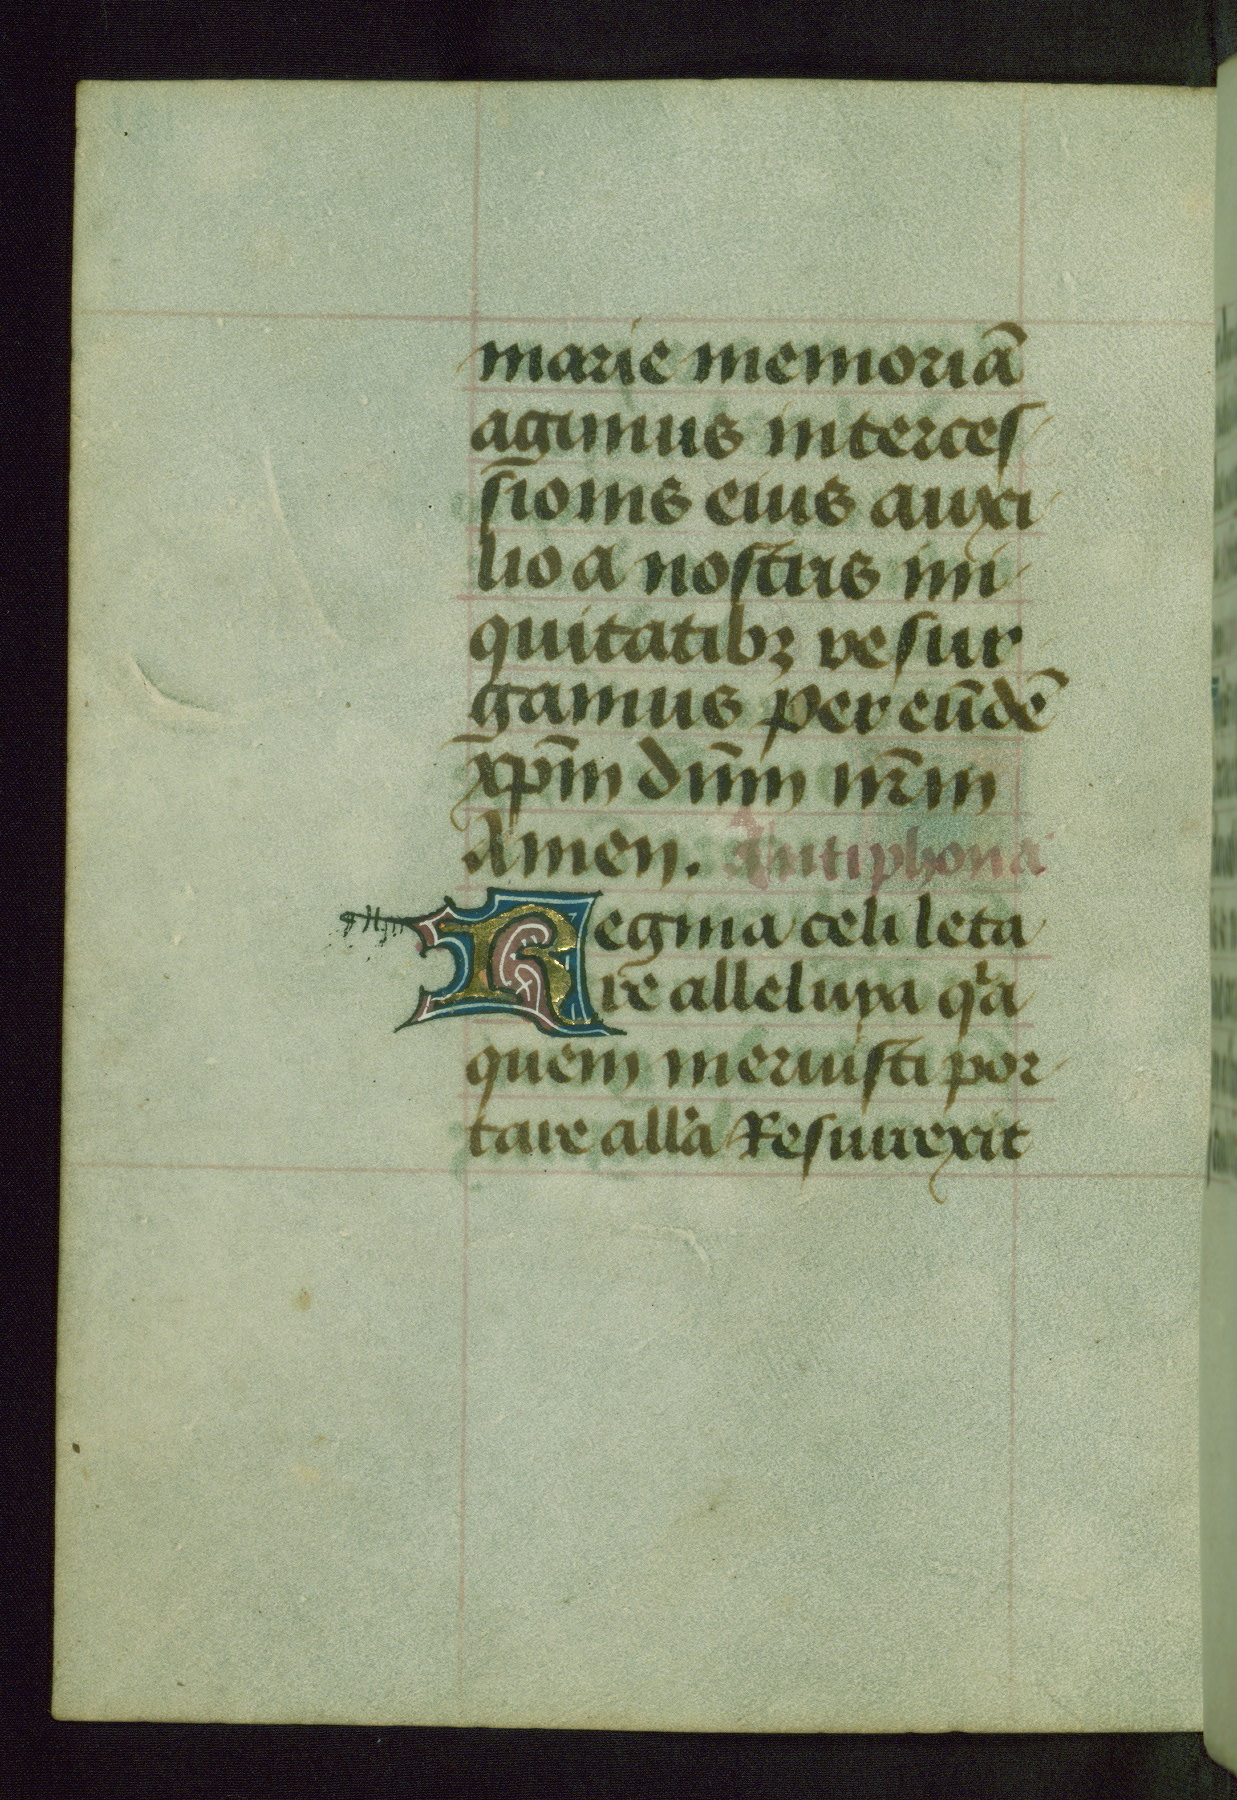 marie memoriā
agimus interces
sionis eius auxi
lio a nostris ini
quitatibꝫ resur
gamus per eūdē
xp̄m dn̄m nr̄m
Amen. Antiphona
Regina celi leta
re alleluya qͥa
quem meruisti por
tare all'a Resurrexit